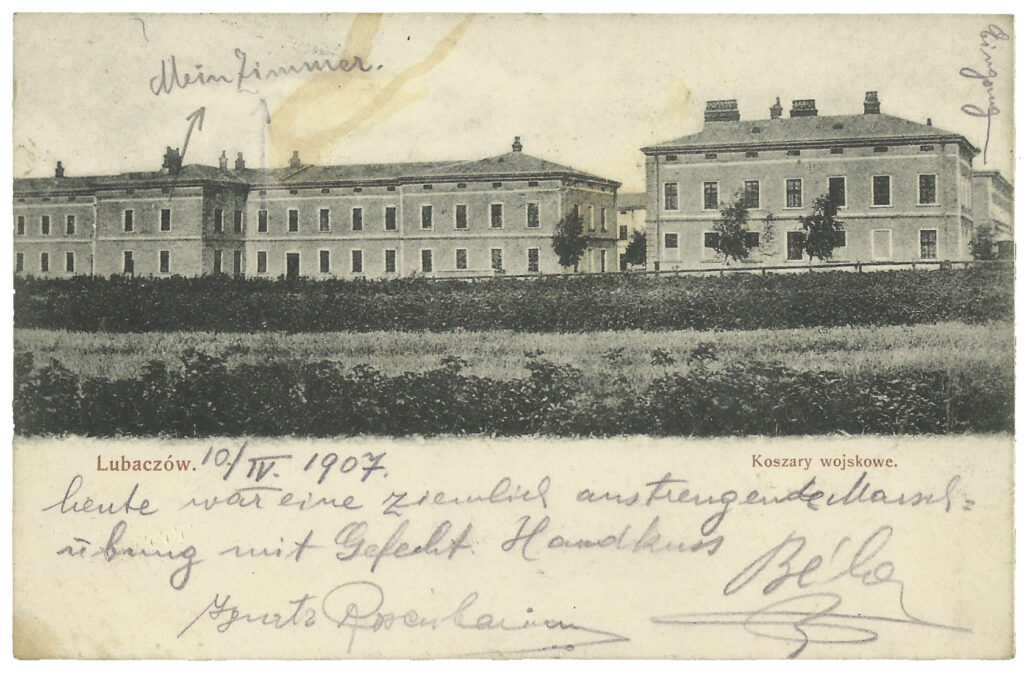 Mein Zimmer.
Eingang
Lubaczów. 10/IV. 1907.
Koszary wojskowe.
heute war eine ziemlich anstrengende Marsch=
übung mit Gefecht. Handkuss
Béla
Ignatz Rosenbaum